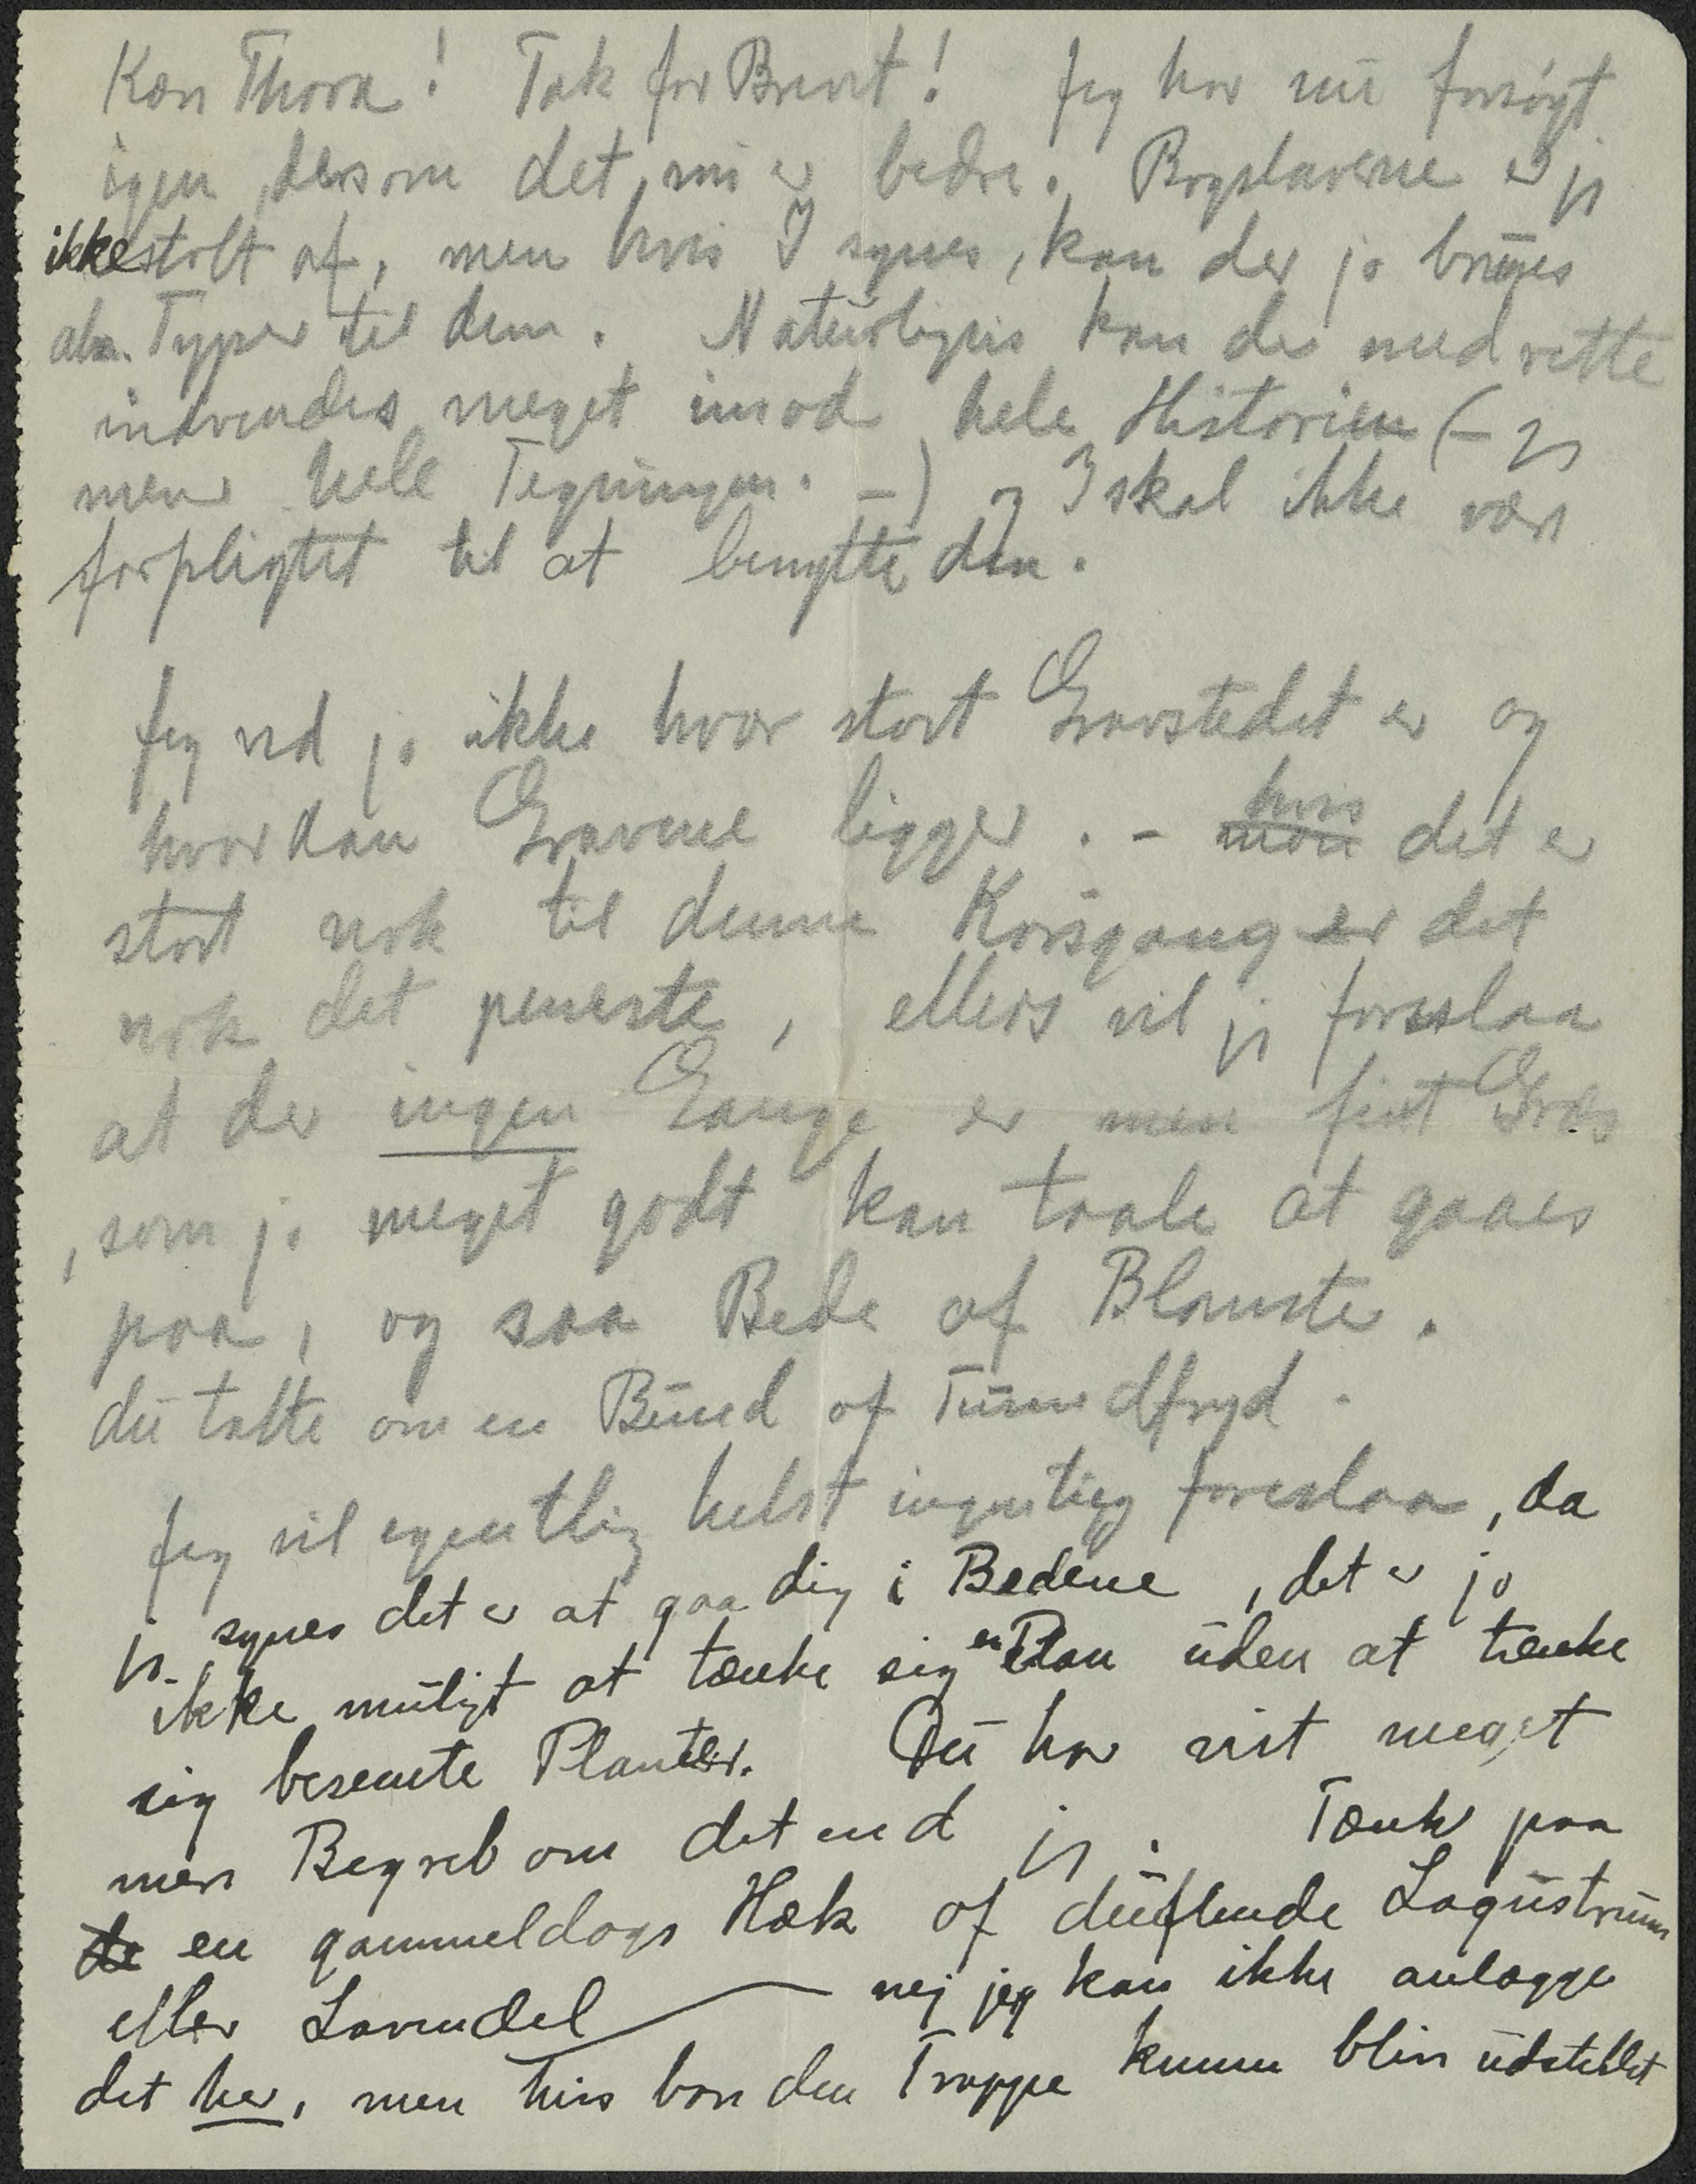 Kære Thora! Tak for Brevet! Jeg har nu forsøgt
igen, dersom det nu er bedre. Bogstaverne er jeg
ikke stolt af, men hvis I synes, kan der jo bruges
alm. Typer til dem. Naturligvis kan der med rette
indvendes meget imod hele Historien (– jeg
mener hele Tegningen. –) og I skal ikke være
forpligtet til at benytte den.
Jeg ved jo ikke hvor stort Gravstedet er og
hvordan Gravene ligger. – hvis det er
stort nok til denne Korsgang er det
nok det peneste, ellers vil jeg foreslaa
at der ingen Gange er men fint Græs
, som jo meget godt kan taale at gaaes
paa, og saa Bede af Blomster.
du talte om en Bund af Tusindfryd.
Jeg vil egentlig helst ingenting foreslaa, da
jeg synes det er at gaa dig i Bedene, det er jo
ikke muligt at tænke sig en Plan uden at tænke
sig bestemte Planter. Du har vist meget
mere Begreb om det end jeg. Tænk paa
de en gammeldags Hæk af duftende Lagustrum
eller Lavendel — nej jeg kan ikke anlægge
det her, men hvis den Trappe kunne blive udstillet